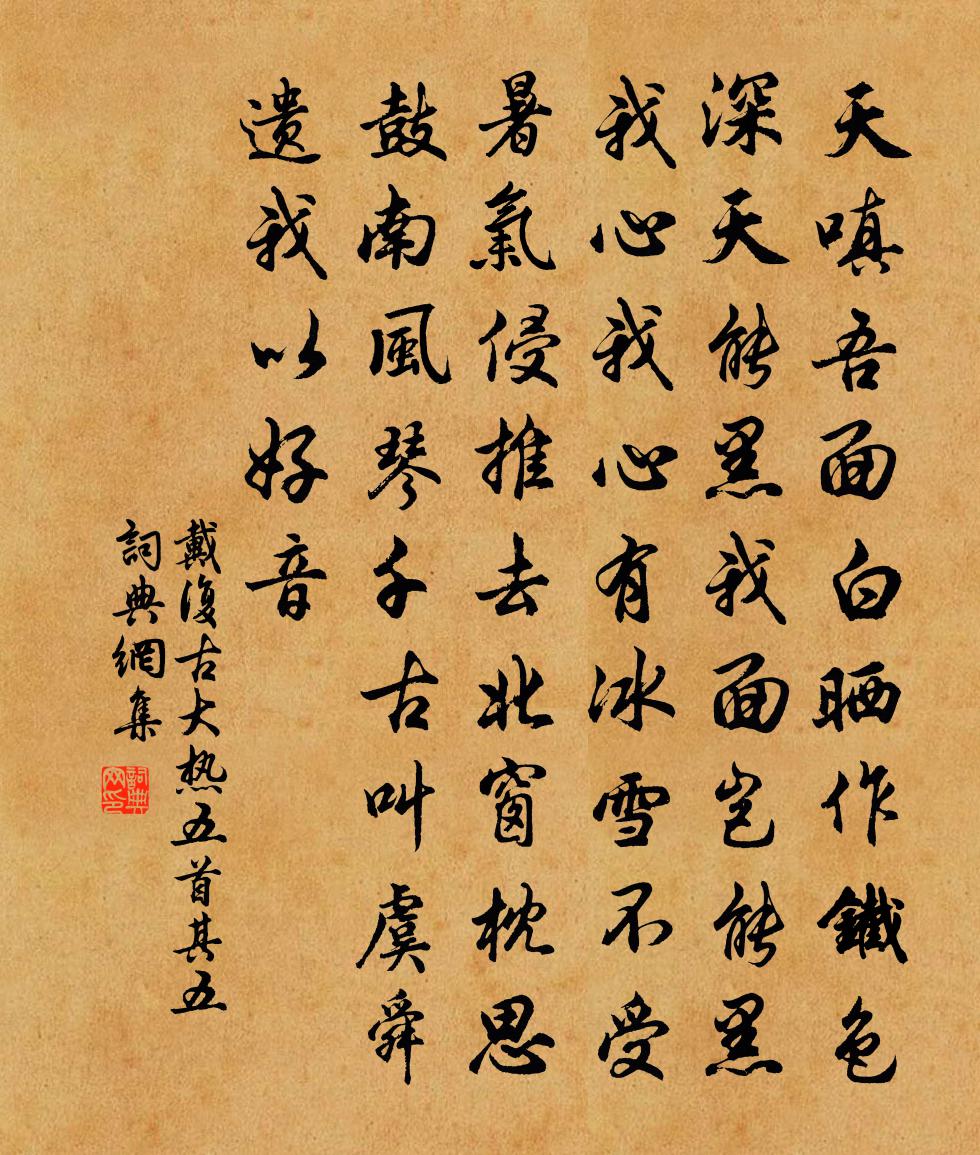 天嗔吾面白晒作鐵色
深天能黑我面豈能黑
我心我心有冰雪不受
暑氣侵推去北窗枕思
鼓南風琴千古叫虞舜
遗我以好音
戴復古大热五首其五
詞典網集
詞典網印